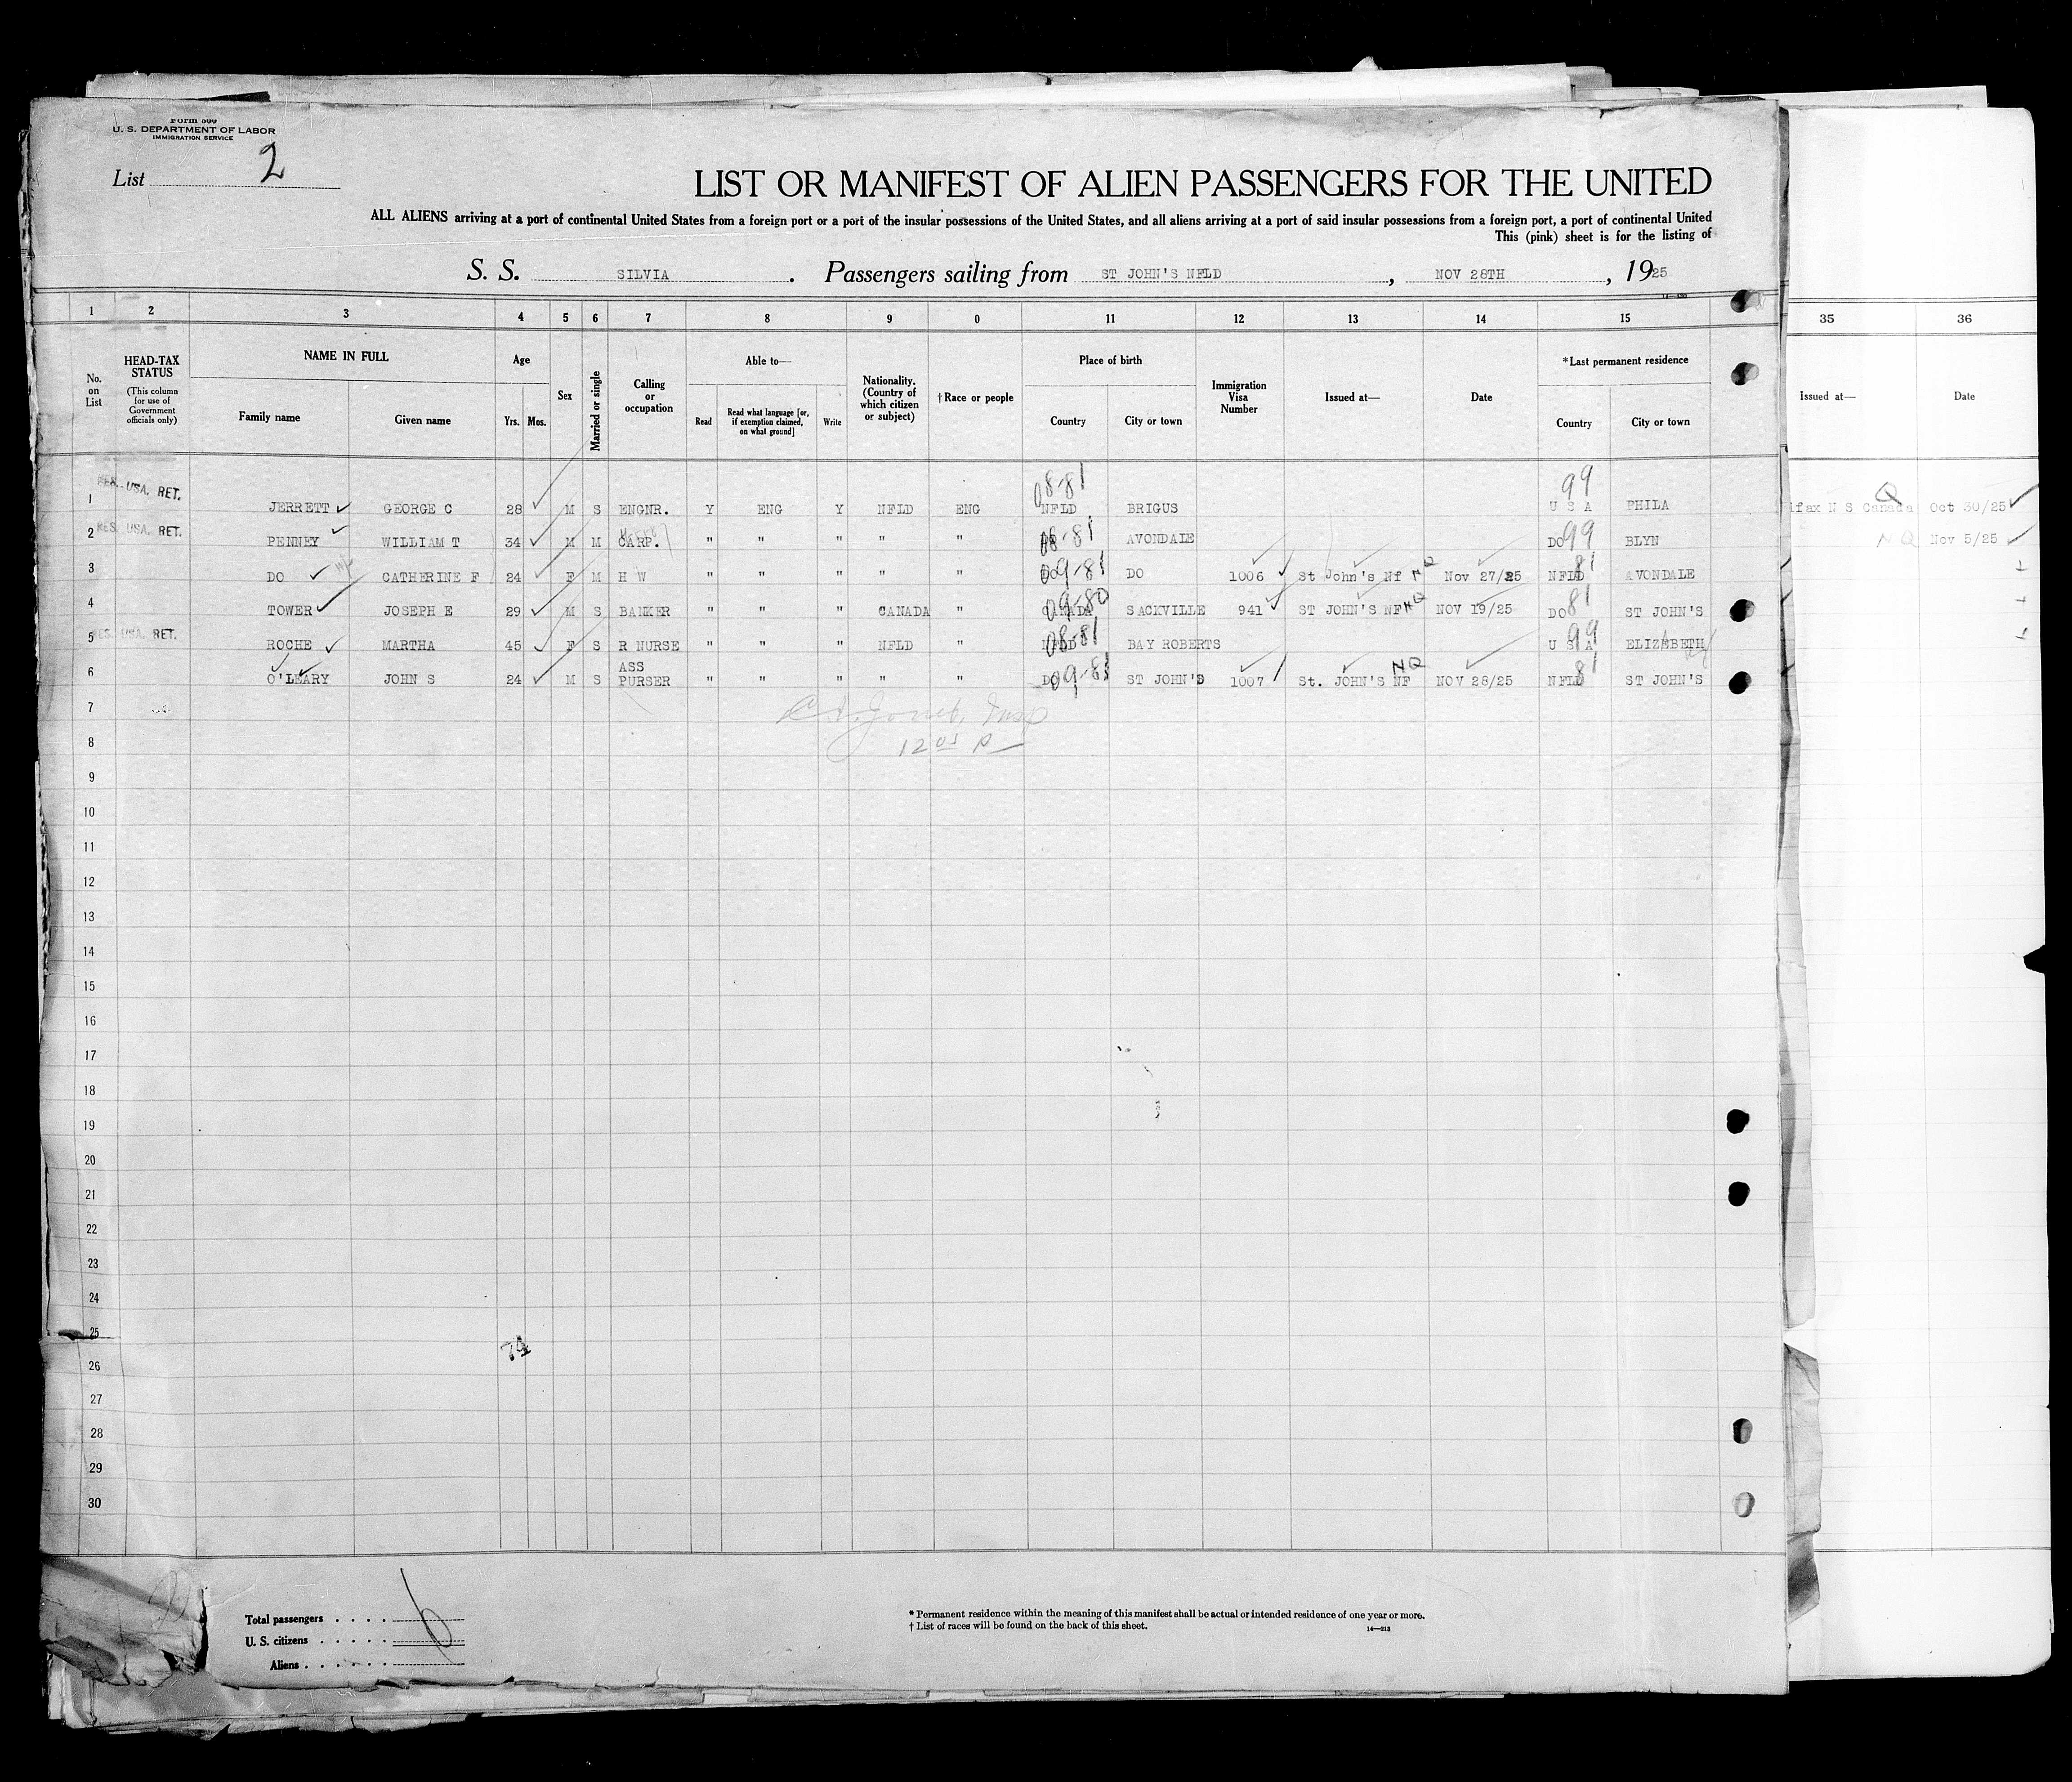 Form 500
U. S. DEPARTMENT OF LABOR
IMMIGRATION SERVICE
List 2
LIST OR MANIFEST OF ALIEN PASSENGERS FOR THE UNITED
ALL ALIENS arriving at a port of continental United States from a foreign port or a port of the insular possessions of the United States, and all aliens arriving at a port of said insular possessions from a foreign port, a port of continental United
This (pink) sheet is for the listing of
S. S. SILVIA. Passengers sailing from ST JOHN'S NFLD, NOV 28TH, 1925
1 2 3 4 5 6 7 8 9 0 11 12 13 14 15 35 36
No. on List HEAD-TAX STATUS (This column for use of Government officials only) NAME IN FULL Family name Given name Age Yrs. Mos. Sex Married or single Calling or occupation Able to— Read Read what language [or, if exemption claimed, on what ground] Write Nationality. (Country of which citizen or subject) †Race or people Place of birth Country City or town Immigration Visa Number Issued at— Date *Last permanent residence Country City or town Issued at— Date
08-81 99 Q
1 RES. USA. RET. JERRETT GEORGE C 28 M S ENGNR. Y ENG Y NFLD ENG NFLD BRIGUS U S A PHILA lifax N S Canada Oct 30/25
2 RES. USA. RET. PENNEY WILLIAM T 34 M M CARP. " " " " " 08-81 AVONDALE DO 99 BLYN NQ Nov 5/25
3 DO CATHERINE F 24 F M H W " " " " " DO 09-81 DO 1006 St John's Nf NQ Nov 27/25 NFLD 81 AVONDALE
4 TOWER JOSEPH E 29 M S BANKER " " " CANADA " CANADA 09-80 SACKVILLE 941 ST JOHN'S NF NQ NOV 19/25 DO 81 ST JOHN'S
5 RES. USA. RET. ROCHE MARTHA 45 F S R NURSE " " " NFLD " NFLD 08-81 BAY ROBERTS U S A 99 ELIZABETH
6 O'LEARY JOHN S 24 M S ASS PURSER " " " " " DO 09-81 ST JOHN'S 1007 St. JOHN'S NF NQ NOV 28/25 NFLD 81 ST JOHN'S
7
8
9
10
11
12
13
14
15
16
17
18
19
20
21
22
23
24
25
74
26
27
28
29
30
Total passengers . . . . 6
U. S. citizens . . . . .
Aliens . . . . . . .
* Permanent residence within the meaning of this manifest shall be actual or intended residence of one year or more.
† List of races will be found on the back of this sheet. 14—213